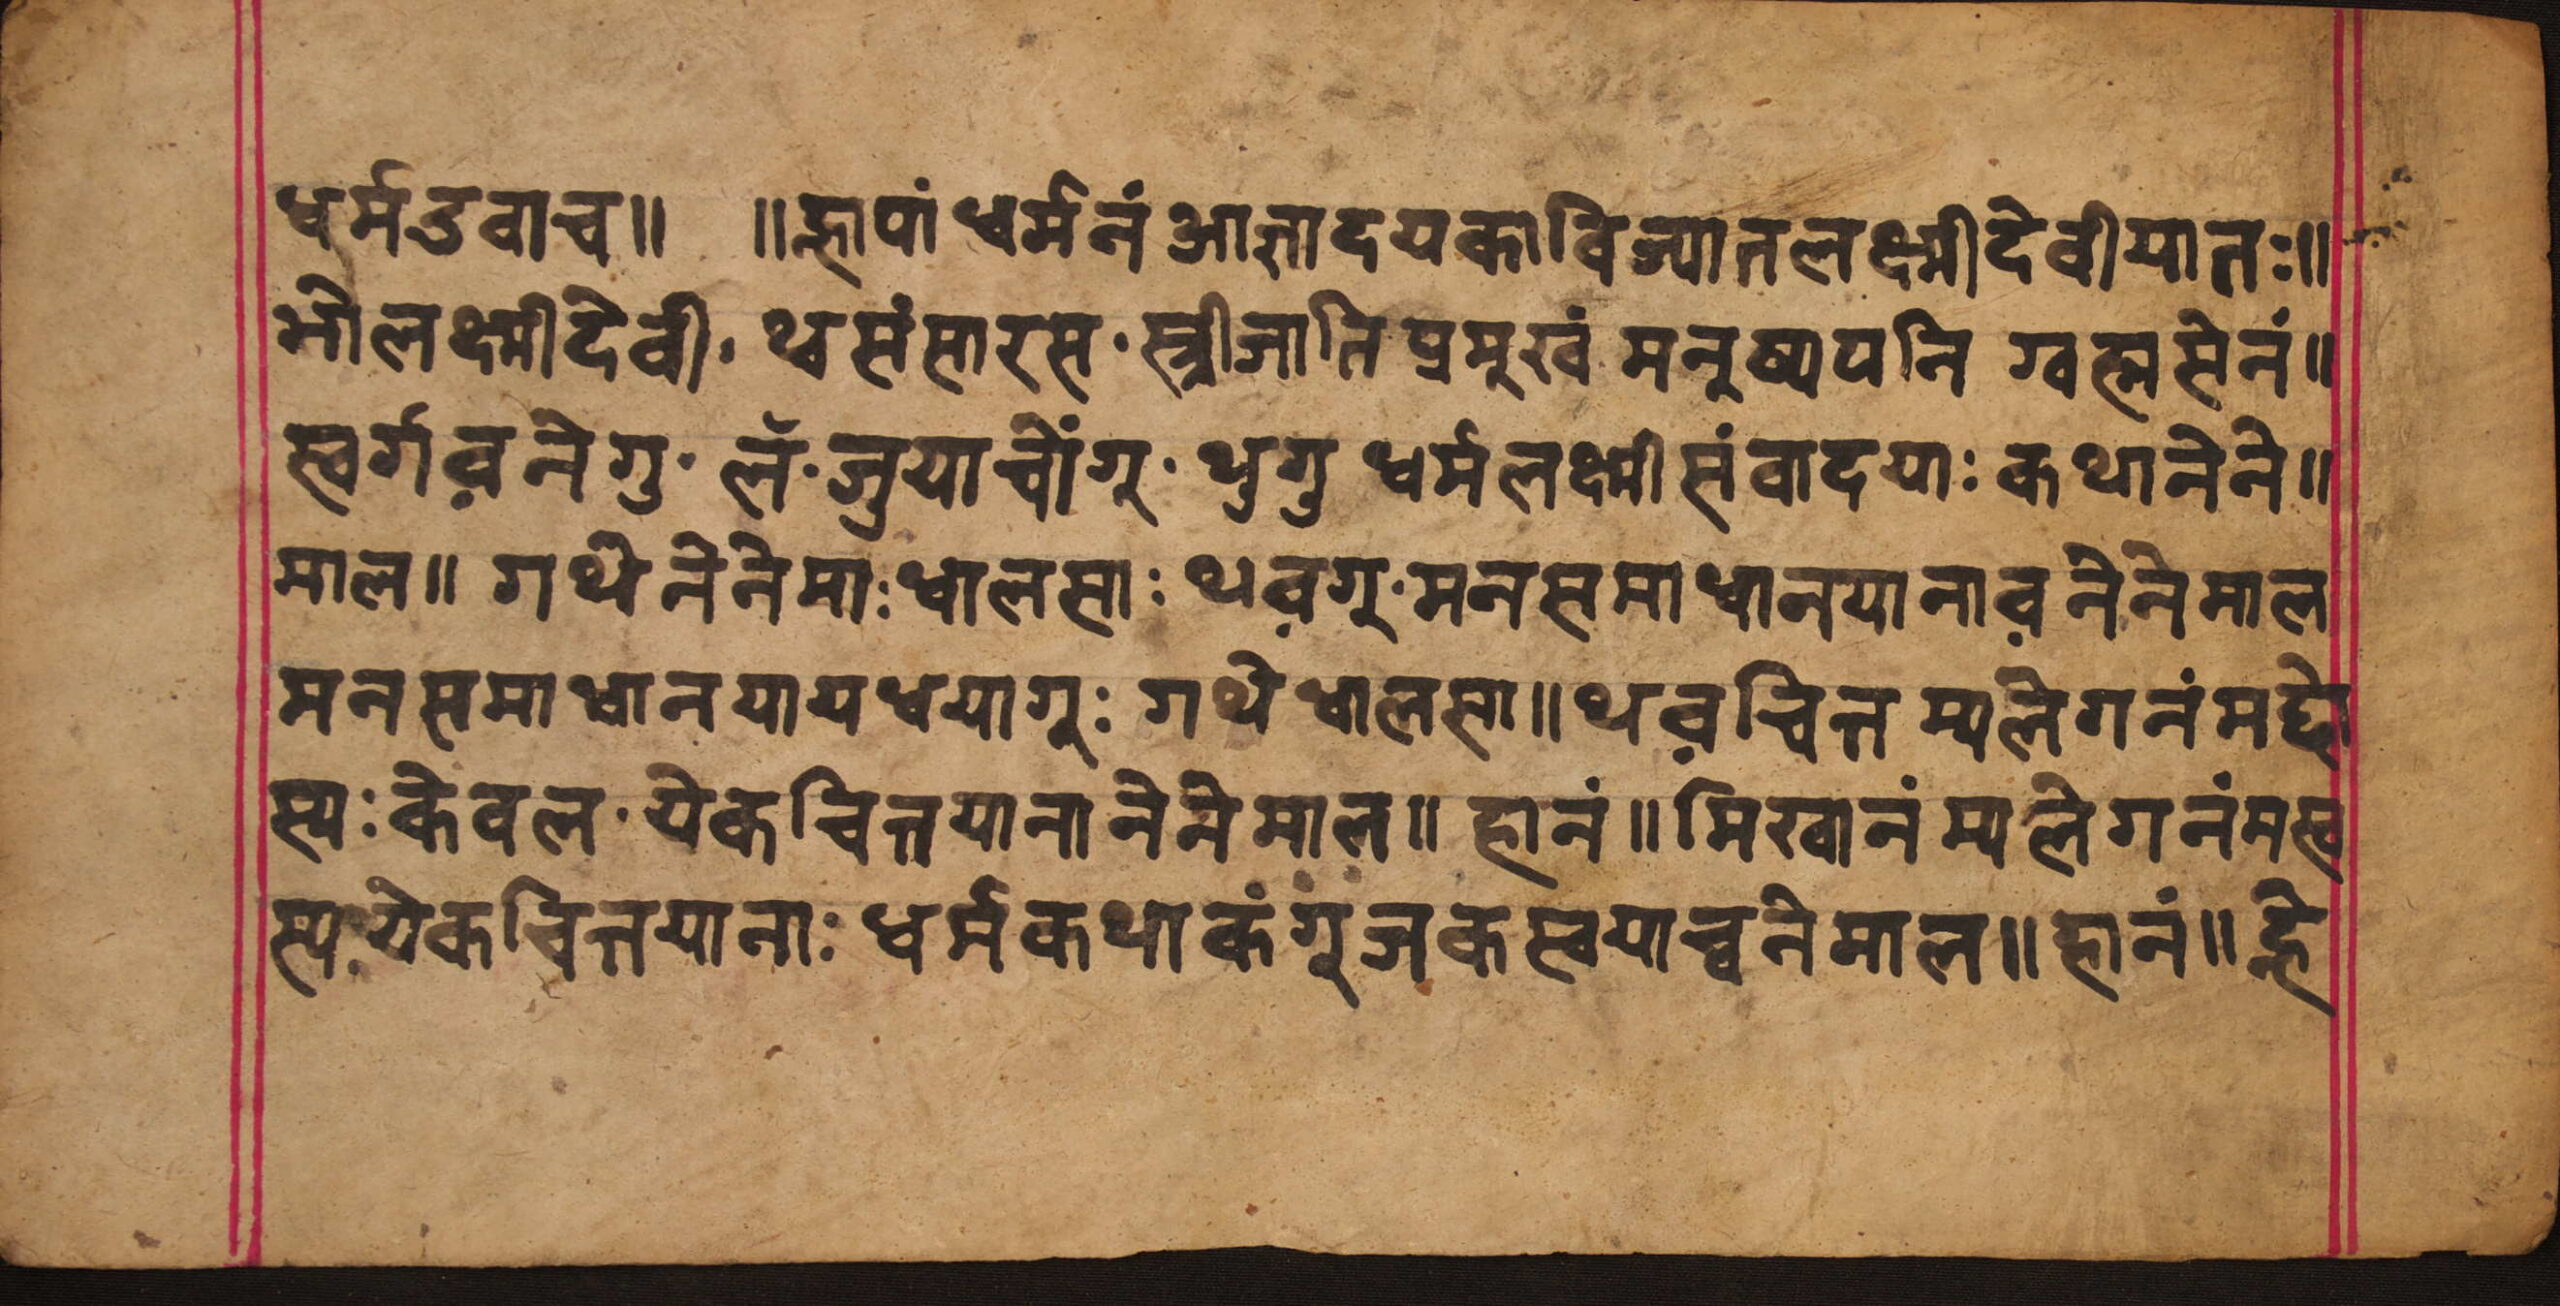 धर्मउवाच॥ ॥ह्नापां धर्मनं आज्ञादयकाविज्यातलक्ष्मीदेवीयातः॥
भोलक्ष्मीदेवी· थ्वसंसारस· स्त्रीजातिप्रमूखं मनूष्यपनि ग्वह्मसेनं॥
स्वर्गव़नेगु· लँ· जुयाचोंगू· थुगु धर्मलक्ष्मीसंवादयाः कथानेने॥
माल॥ गथेनेनेमाः धालसाः थव़गू· मनसमाधानयानाव़नेनेमाल
मनसमाधानयायधयागूः गथेधालसा॥थव़चित्तम्यलेगनंमद्छो
स्यः केवल· येकचित्तयानानेनेमाल॥ हानं॥मिखानंम्यलेगनंमस्व
स्य येकचित्तयानाः धर्मकथाकंगूंजकस्वयाच्वनेमाल॥हानं॥ह्ने